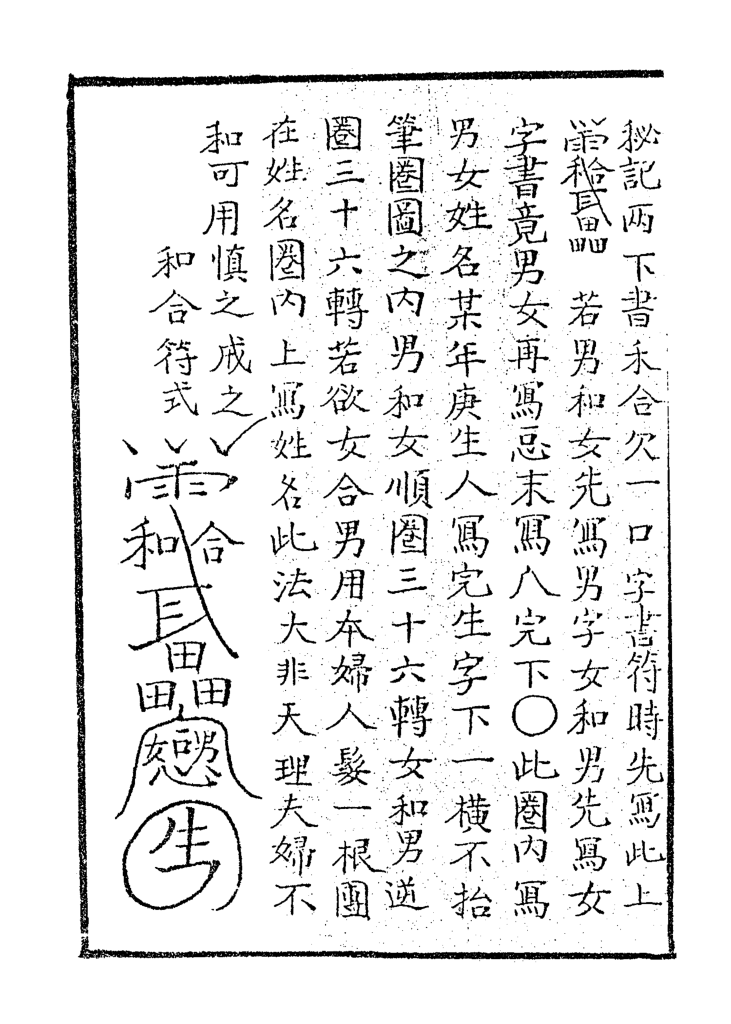 秘記两下書禾合欠一口字書符時先寫此上
若男和女先寫男字女和男先寫女
字書竟男女再寫忌末寫八完下〇此圈内寫
男女姓名某年庚生人寫完生字下一横不抬
筆圈圖之内男和女順圈三十六轉女和男逆
圈三十六轉若欲女合男用本婦人髮一根團
在姓名圈内上寫姓名此法大非天理夫婦不
和可用慎之戒之
和合符式
和合
田
田田
生